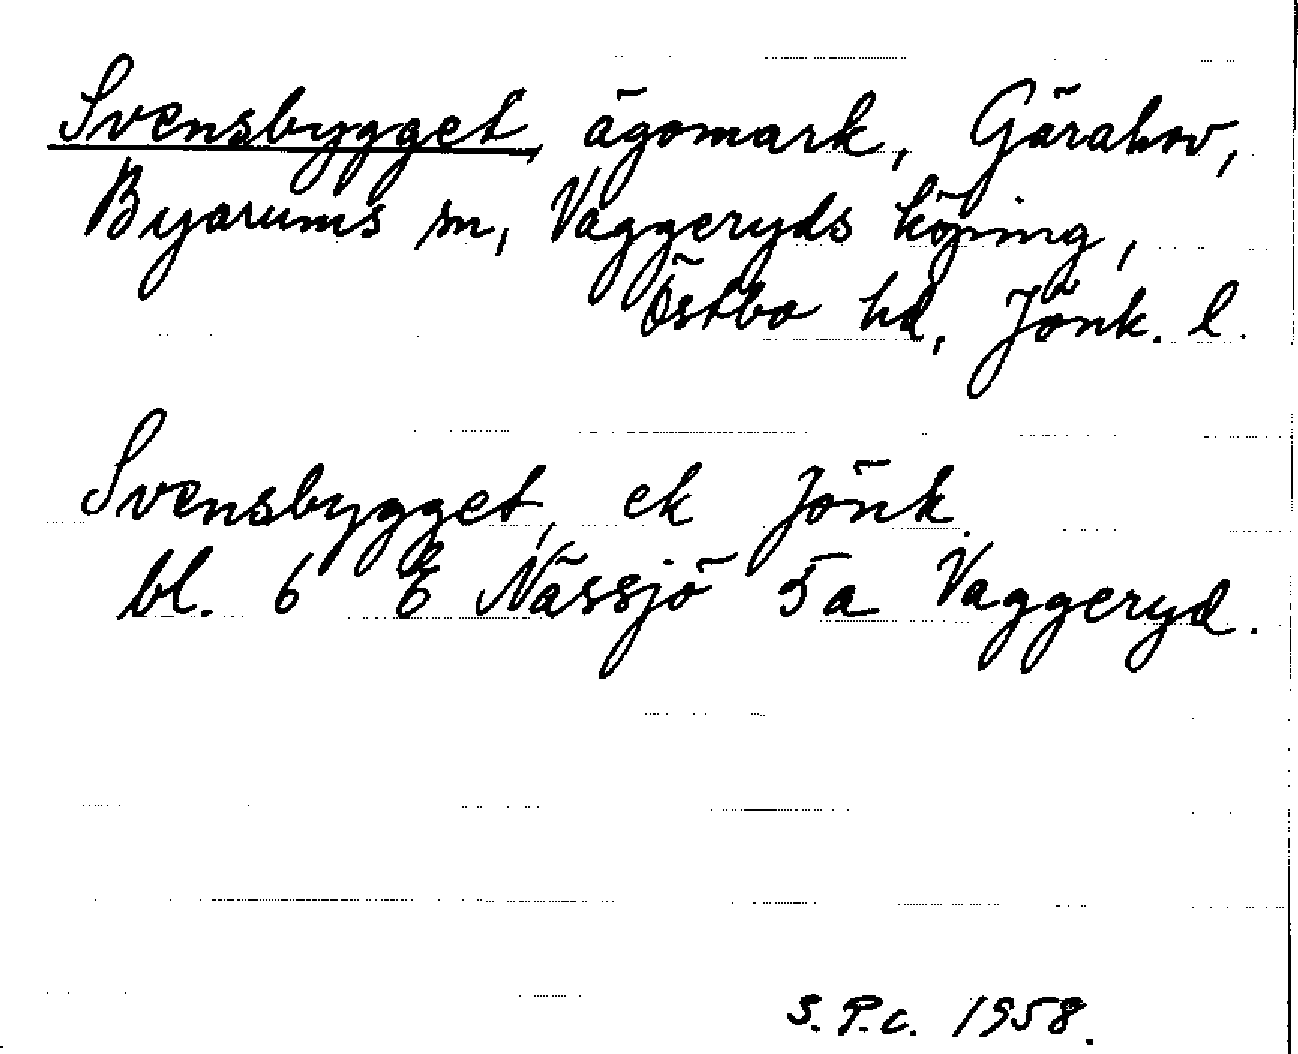 Svensbygget, ägomark, Gärahov,
Byarums sn, Vaggeryds köping,
Östbo hd, Jönk. l.
Svensbygget, ek Jönk.
bl. 6 E Nässjö 5a Vaggeryd.
S.P.c. 1958.